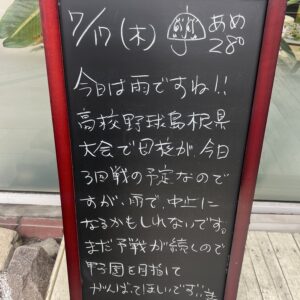 7/17(木) あめ
28°
今日は雨ですね!!
高校野球島根県
大会で母校が今日
3回戦の予定なので
すが、雨で、中止に
なるかもしれないです。
まだ予戦が続くので
甲子園を目指して
がんばってほしいです!!